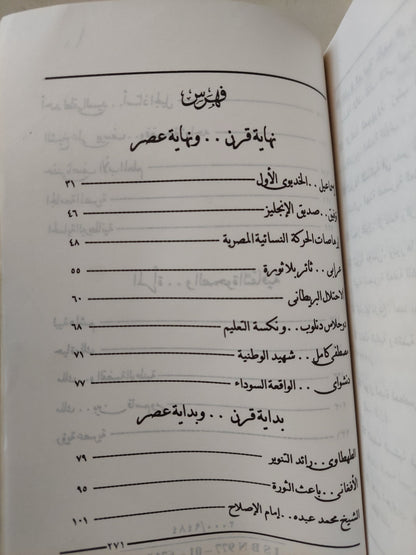 فهرس
نهاية قرن . . ونهاية عصر
إسماعيل . . الخديوى الأول ٣١
توفيق . . صديق الإنجليز ٤٦
إرهاصات الحركة النسائية المصرية ٤٨
عرابى . . ثائر بلا ثورة ٥٥
الاحتلال البريطانى ٦٠
دوجلاس دنلوب . . ونكسة التعليم ٦٨
مصطفى كامل . . شهيد الوطنية ٧١
دنشواى . . الواقعة السوداء ٧٧
بداية قرن . . وبداية عصر
الطهطاوى . . رائد التنوير ٧٩
الأفغانى . . باعث الثورة ٩٥
الشيخ محمد عبده . . إمام الإصلاح ١٠١
٢٧١